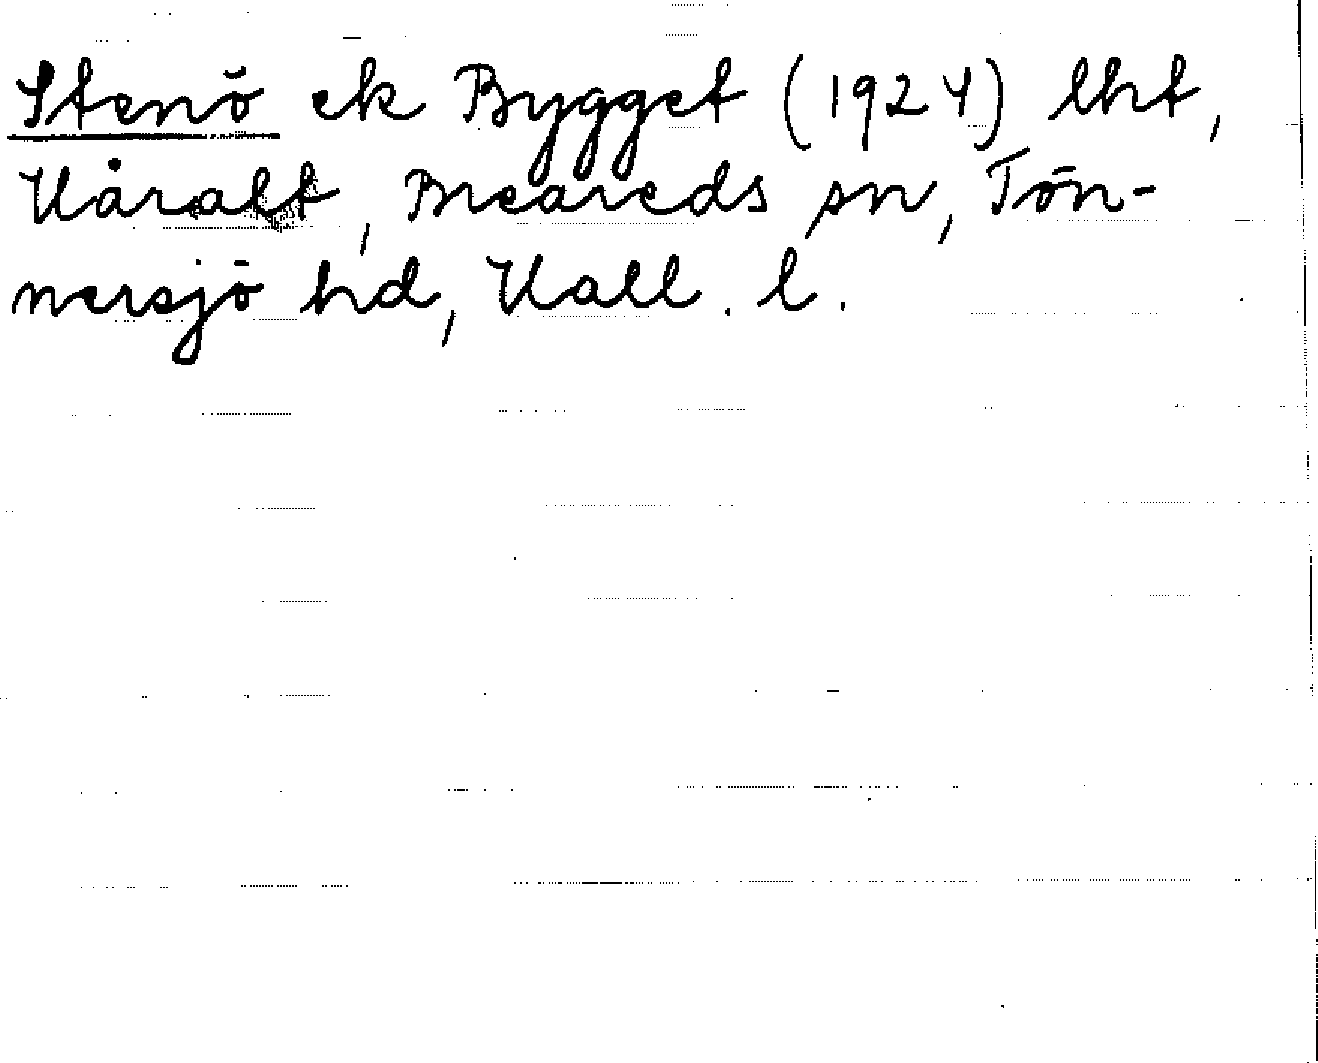 Stenö ek Bygget (1924) lht,
Håralt, Breareds sn, Tön-
nersjö hd, Hall. l.